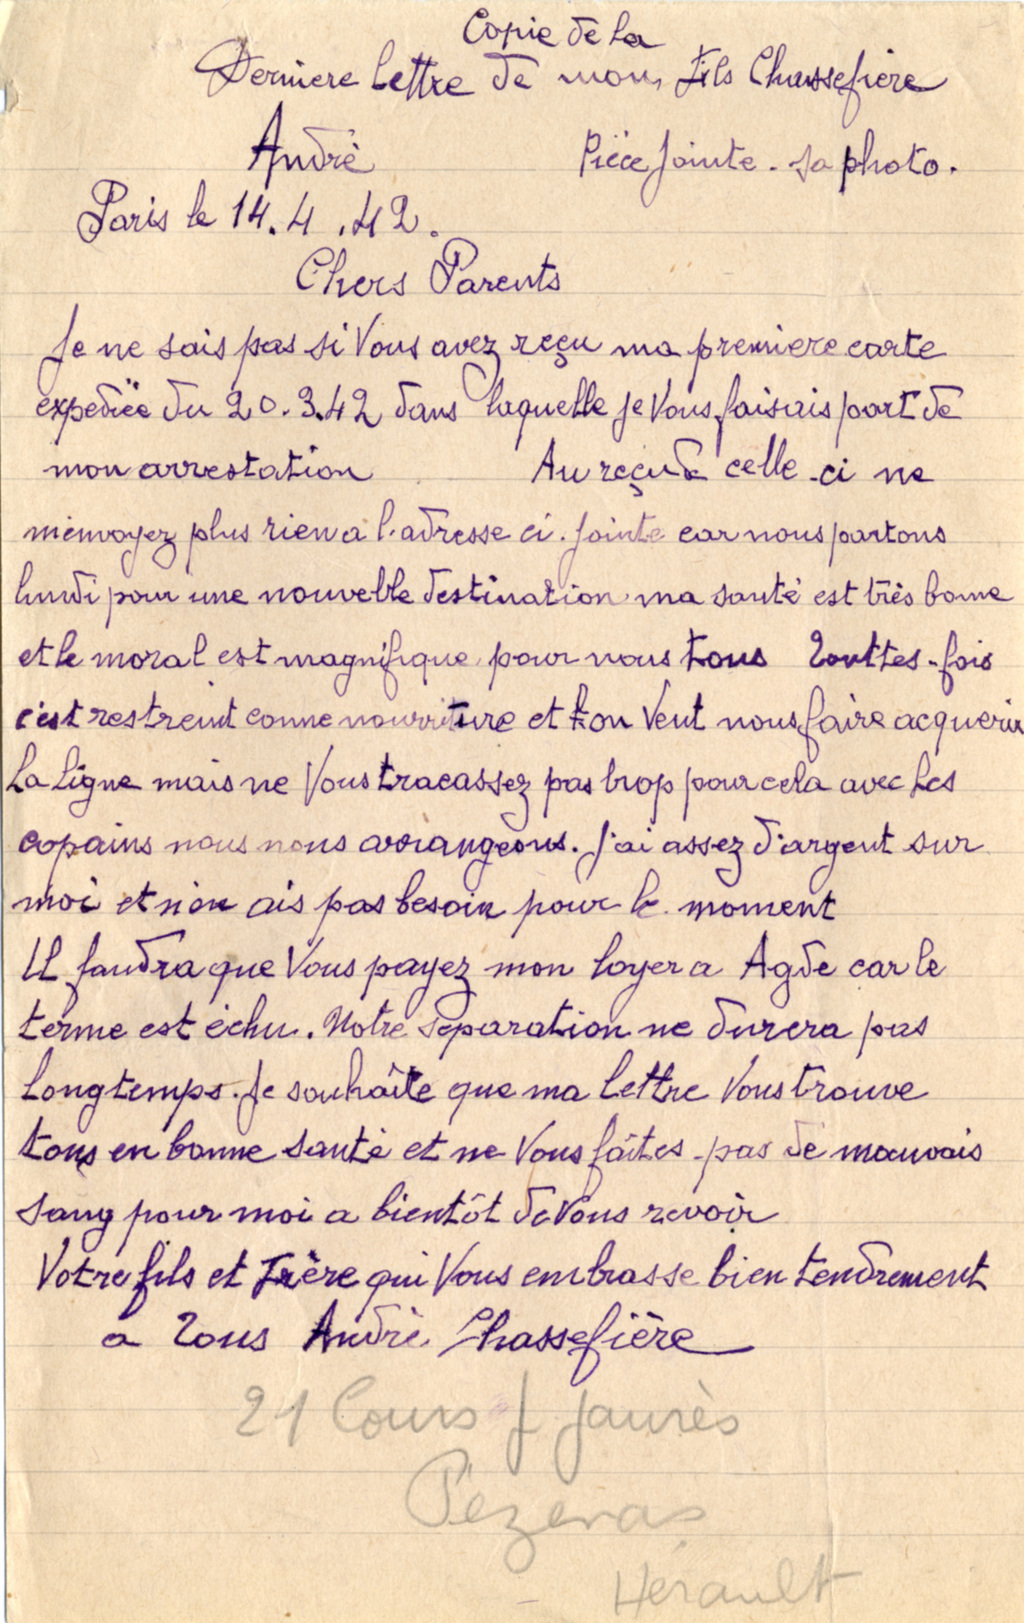 Copie de la
Derniere lettre de mon fils Chassefière
André Pièce jointe - sa photo.
Paris le 14.4.42.
Chers Parents
Je ne sais pas si Vous avez reçu ma premiere carte
expediée du 20.3.42 dans laquelle je Vous faisais part de
mon arrestation Au reçu de celle-ci ne
m'envoyez plus rien a l'adresse ci-jointe car nous partons
lundi pour une nouvelle destination ma santé est très bonne
et le moral est magnifique pour nous tous Touttes-fois
c'est restreint comme nourriture et l'on Veut nous faire acquerir
La Ligne mais ne Vous tracassez pas trop pour cela avec Les
copains nous nous arrangeons. J'ai assez d'argent sur
moi et n'en ais pas besoin pour le moment
Il faudra que Vous payez mon loyer a Agde car le
terme est échu. Notre separation ne durera pas
Longtemps. Je souhaîte que ma lettre Vous trouve
tous en bonne santé et ne Vous faîtes pas de mauvais
sang pour moi a bientôt de Vous revoir
Votre fils et Frère qui Vous embrasse bien tendrement
a Tous André Chassefière
21 Cours J Jaurès
Pézenas
Hérault